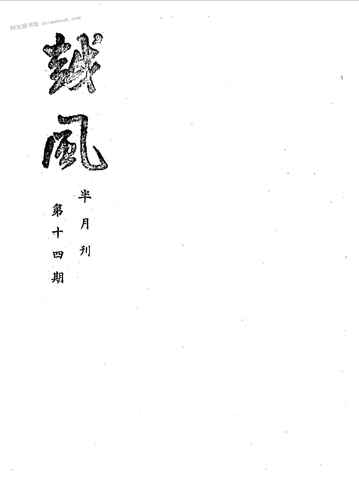 越風
半月刊
第十四期